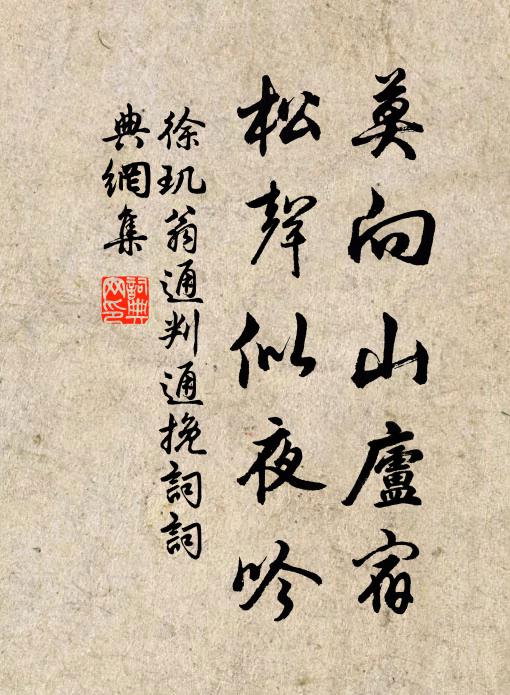 莫向山廬宿
松聲似夜吟
徐玑翁通判通挽詞詞
典網集
詞典網印